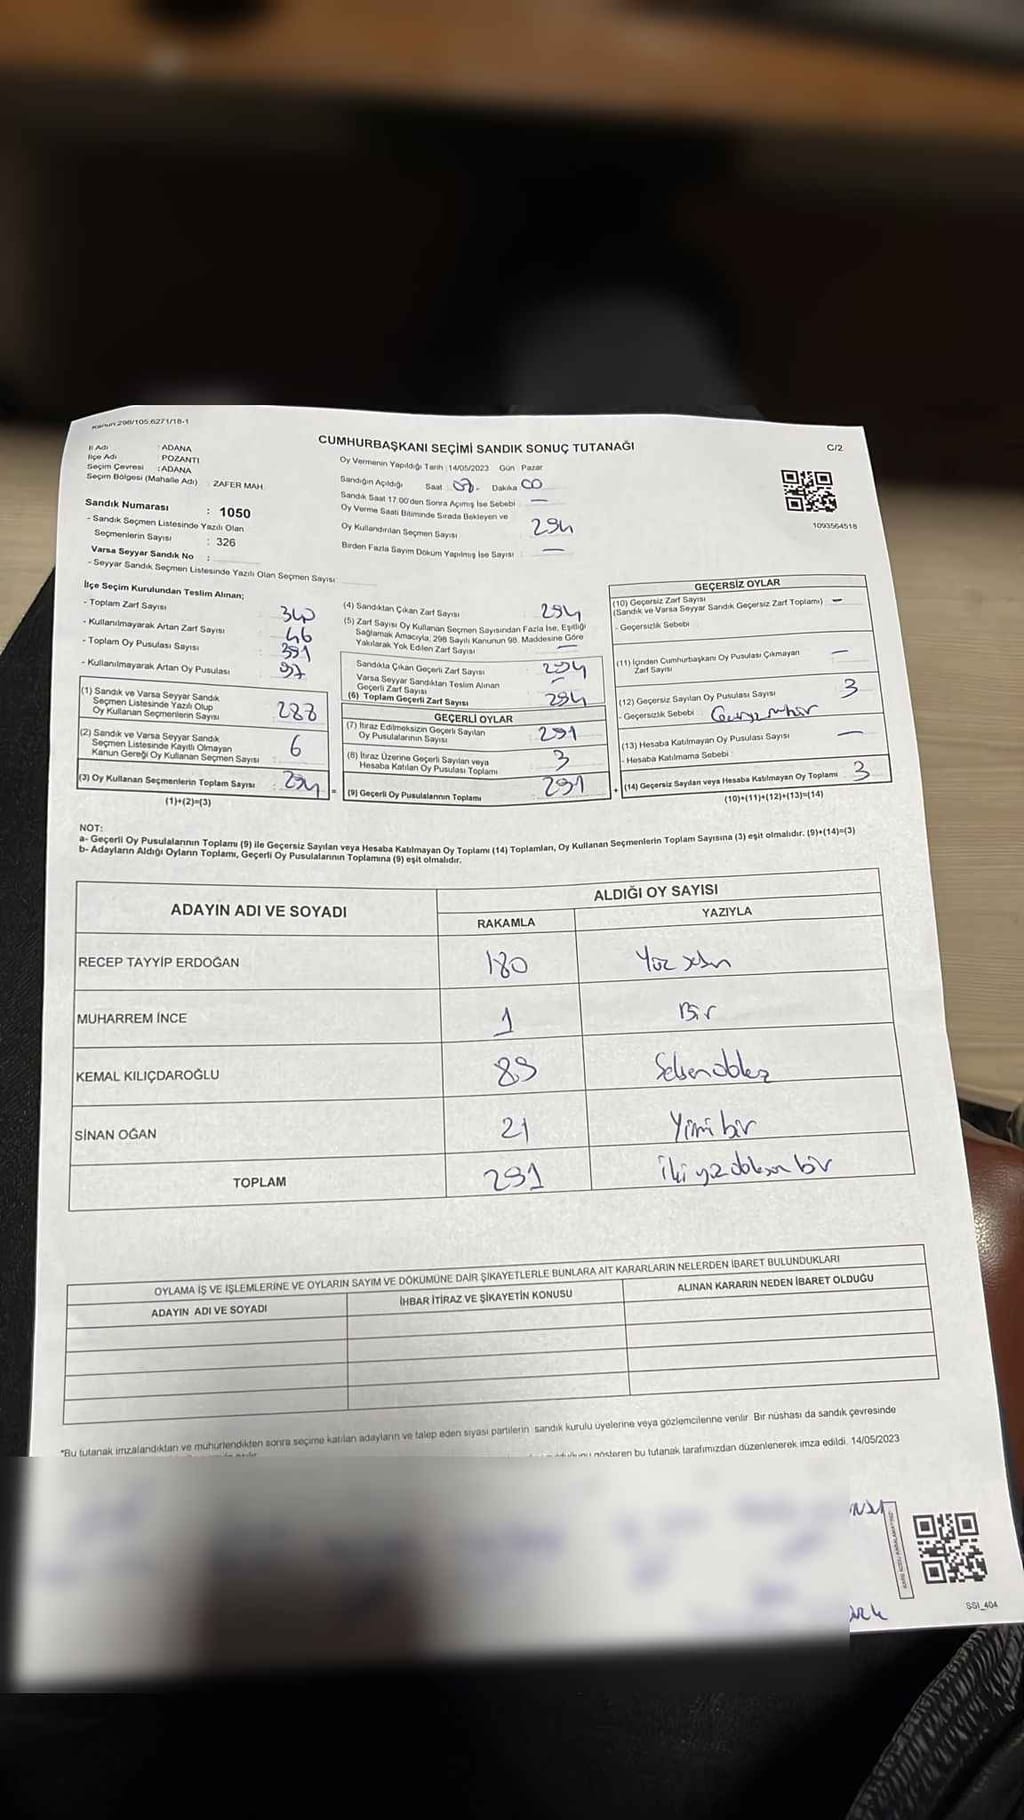 Kanun:298/105,6271/18-1
CUMHURBAŞKANI SEÇİMİ SANDIK SONUÇ TUTANAĞI
C/2
İl Adı : ADANA
İlçe Adı : POZANTI
Seçim Çevresi : ADANA
Seçim Bölgesi (Mahalle Adı) : ZAFER MAH.
Sandık Numarası : 1050
- Sandık Seçmen Listesinde Yazılı Olan
Seçmenlerin Sayısı : 326
Varsa Seyyar Sandık No :
- Seyyar Sandık Seçmen Listesinde Yazılı Olan Seçmen Sayısı:
Oy Vermenin Yapıldığı Tarih : 14/05/2023 Gün : Pazar
Sandığın Açıldığı Saat : 08. Dakika : 00
Sandık Saat 17.00'den Sonra Açılmış İse Sebebi : —
Oy Verme Saati Bitiminde Sırada Bekleyen ve
Oy Kullandırılan Seçmen Sayısı : 294
Birden Fazla Sayım Döküm Yapılmış İse Sayısı : —
1093564518
İlçe Seçim Kurulundan Teslim Alınan;
- Toplam Zarf Sayısı : 340
- Kullanılmayarak Artan Zarf Sayısı : 46
- Toplam Oy Pusulası Sayısı : 391
- Kullanılmayarak Artan Oy Pusulası : 97
(1) Sandık ve Varsa Seyyar Sandık
Seçmen Listesinde Yazılı Olup
Oy Kullanan Seçmenlerin Sayısı : 288
(2) Sandık ve Varsa Seyyar Sandık
Seçmen Listesinde Kayıtlı Olmayan
Kanun Gereği Oy Kullanan Seçmen Sayısı : 6
(3) Oy Kullanan Seçmenlerin Toplam Sayısı : 294
(1)+(2)=(3)
(4) Sandıktan Çıkan Zarf Sayısı : 294
(5) Zarf Sayısı Oy Kullanan Seçmen Sayısından Fazla İse, Eşitliği
Sağlamak Amacıyla, 298 Sayılı Kanunun 98. Maddesine Göre
Yakılarak Yok Edilen Zarf Sayısı : —
Sandıkta Çıkan Geçerli Zarf Sayısı : 294
Varsa Seyyar Sandıktan Teslim Alınan
Geçerli Zarf Sayısı : —
(6) Toplam Geçerli Zarf Sayısı : 294
GEÇERLİ OYLAR
(7) İtiraz Edilmeksizin Geçerli Sayılan
Oy Pusulalarının Sayısı : 291
(8) İtiraz Üzerine Geçerli Sayılan veya
Hesaba Katılan Oy Pusulası Toplamı : 3
(9) Geçerli Oy Pusulalarının Toplamı : 291
GEÇERSİZ OYLAR
(10) Geçersiz Zarf Sayısı
(Sandık ve Varsa Seyyar Sandık Geçersiz Zarf Toplamı) : —
- Geçersizlik Sebebi :
(11) İçinden Cumhurbaşkanı Oy Pusulası Çıkmayan
Zarf Sayısı : —
(12) Geçersiz Sayılan Oy Pusulası Sayısı : 3
- Geçersizlik Sebebi :
(13) Hesaba Katılmayan Oy Pusulası Sayısı : —
- Hesaba Katılmama Sebebi :
(14) Geçersiz Sayılan veya Hesaba Katılmayan Oy Toplamı : 3
(10)+(11)+(12)+(13)=(14)
NOT:
a- Geçerli Oy Pusulalarının Toplamı (9) ile Geçersiz Sayılan veya Hesaba Katılmayan Oy Toplamı (14) Toplamları, Oy Kullanan Seçmenlerin Toplam Sayısına (3) eşit olmalıdır. (9)+(14)=(3)
b- Adayların Aldığı Oyların Toplamı, Geçerli Oy Pusulalarının Toplamına (9) eşit olmalıdır.
ADAYIN ADI VE SOYADI
ALDIĞI OY SAYISI
RAKAMLA YAZIYLA
RECEP TAYYİP ERDOĞAN 180 Yüz seksen
MUHARREM İNCE 1 Bir
KEMAL KILIÇDAROĞLU 89 Seksendokuz
SİNAN OĞAN 21 Yirmi bir
TOPLAM 291 İki yüz doksan bir
OYLAMA İŞ VE İŞLEMLERİNE VE OYLARIN SAYIM VE DÖKÜMÜNE DAİR ŞİKAYETLERLE BUNLARA AİT KARARLARIN NELERDEN İBARET BULUNDUKLARI
ADAYIN ADI VE SOYADI İHBAR İTİRAZ VE ŞİKAYETİN KONUSU ALINAN KARARIN NEDEN İBARET OLDUĞU
*Bu tutanak imzalandıktan ve mühürlendikten sonra seçime katılan adayların ve talep eden siyasi partilerin sandık kurulu üyelerine veya gözlemcilerine verilir. Bir nüshası da sandık çevresinde
gösteren bu tutanak tarafımızdan düzenlenerek imza edildi. 14/05/2023
SSI_404